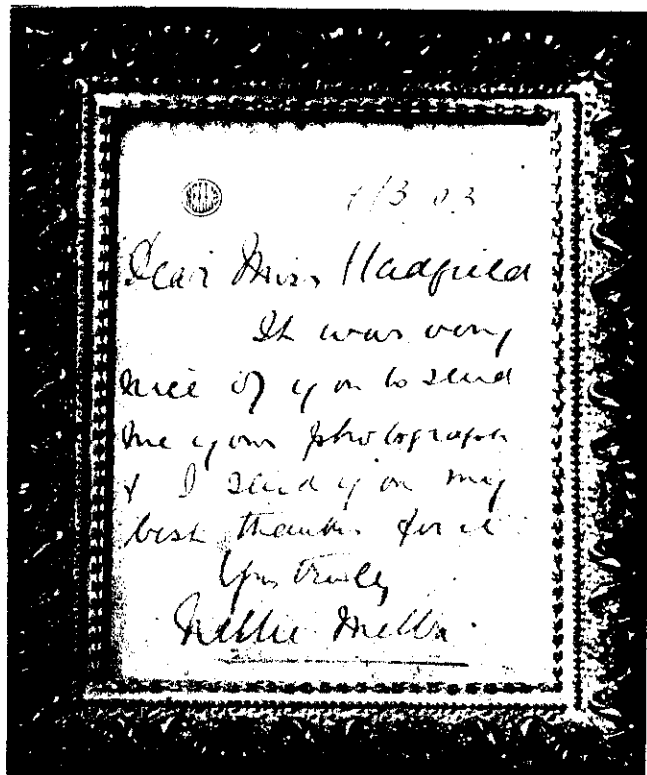 1/3.03
Dear Miss Hadfield
It was very
nice of you to send
me your photograph
& I send you my
best thanks for it
Yrs truly
Nellie Melba.